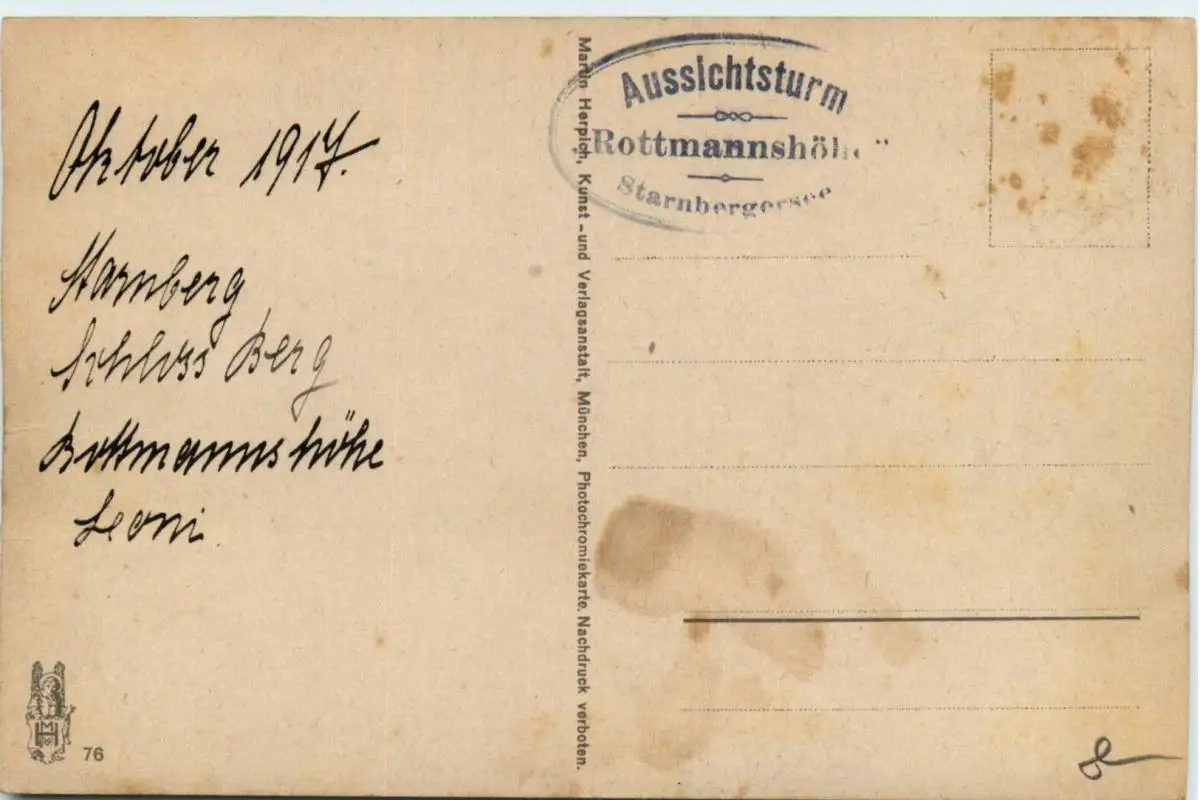 Oktober 1917.
Starnberg
Schloss Berg
Rottmannshöhe
Leoni
76
Martin Herpich, Kunst- und Verlagsanstalt, München, Photochromiekarte. Nachdruck verboten.
Aussichtsturm
„Rottmannshöhe”
Starnbergersee